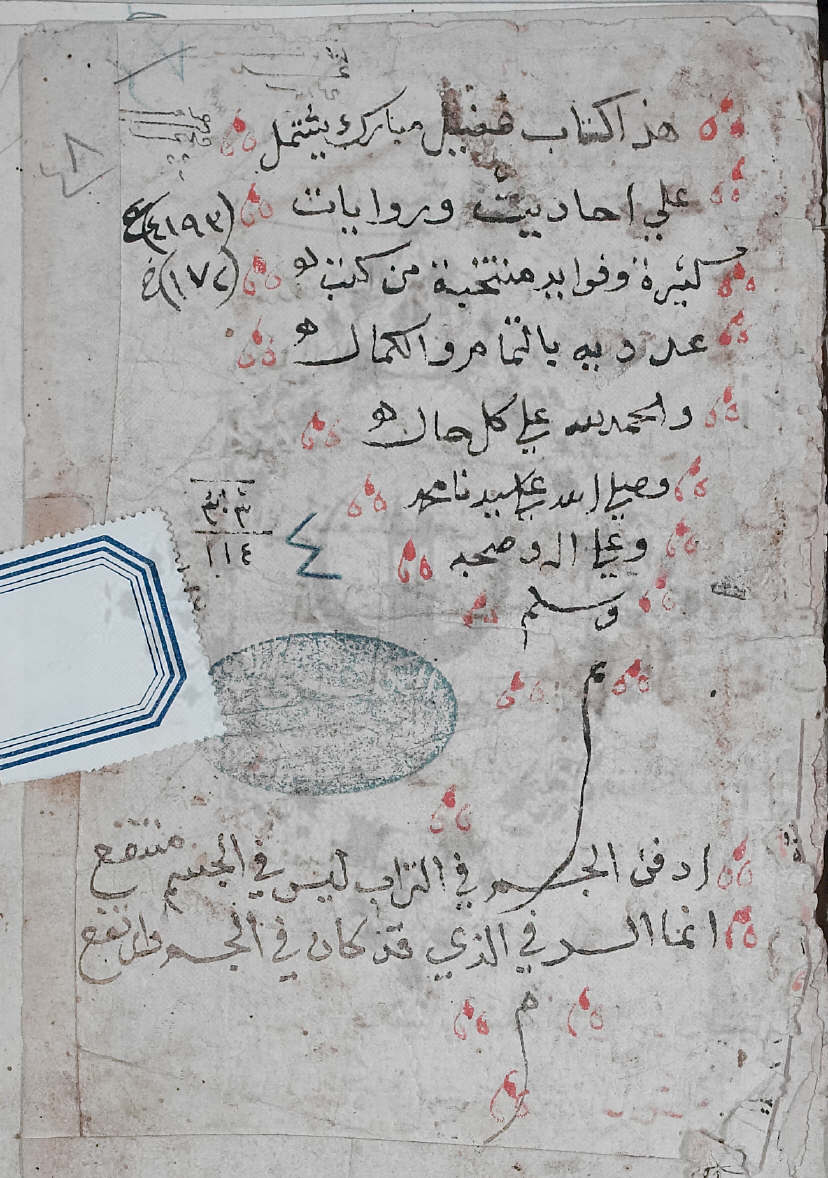 هذا كتاب مبارك يشتمل
علي احاديث وروايات
(٤١٩٣)ع
كثيرة وفوايد منتخبة من كتب
(١٧٢)ع
عدديه بالتمام والكمال
والحمد لله علي كل حال
وصلي الله علي سيدنا محمد
وعلي اله وصحبه
٤
١١٤
وسلم
م
ادفن الجسم في التراب ليس في الجسم منتفع
انما السر في الذي قد كان في الجسم وارتفع
م